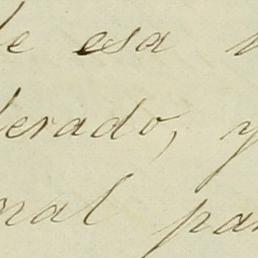 de esa
derado, y
nal par